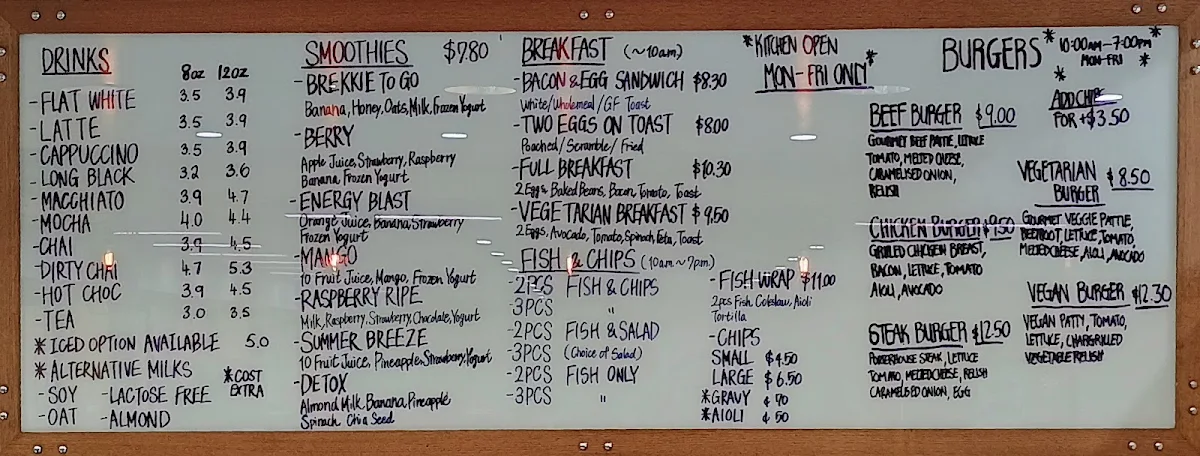 DRINKS
8oz 12oz
-FLAT WHITE 3.5 3.9
-LATTE 3.5 3.9
-CAPPUCCINO 3.5 3.9
-LONG BLACK 3.2 3.6
-MACCHIATO 3.9 4.7
-MOCHA 4.0 4.4
-CHAI 3.9 4.5
-DIRTY CHAI 4.7 5.3
-HOT CHOC 3.9 4.5
-TEA 3.0 3.5
*ICED OPTION AVAILABLE 5.0
*ALTERNATIVE MILKS *COST EXTRA
-SOY -LACTOSE FREE
-OAT -ALMOND
SMOOTHIES $7.80
-BREKKIE TO GO
Banana, Honey, Oats, Milk, Frozen Yogurt
-BERRY
Apple Juice, Strawberry, Raspberry
Banana, Frozen Yogurt
-ENERGY BLAST
Orange Juice, Banana, Strawberry
Frozen Yogurt
-MANGO
10 Fruit Juice, Mango, Frozen Yogurt
-RASPBERRY RIPE
Milk, Raspberry, Strawberry, Chocolate, Yogurt
-SUMMER BREEZE
10 Fruit Juice, Pineapple, Strawberry, Yogurt
-DETOX
Almond Milk, Banana, Pineapple
Spinach, Chia Seed
BREAKFAST (~10am)
-BACON & EGG SANDWICH $8.30
White/Wholemeal/GF Toast
-TWO EGGS ON TOAST $8.00
Poached/Scramble/Fried
-FULL BREAKFAST $10.30
2 Eggs, Baked Beans, Bacon, Tomato, Toast
-VEGETARIAN BREAKFAST $9.50
2 Eggs, Avocado, Tomato, Spinach, Feta, Toast
*KITCHEN OPEN
MON-FRI ONLY*
FISH & CHIPS (10am~7pm)
-2PCS FISH & CHIPS
-3PCS "
-2PCS FISH & SALAD
-3PCS (Choice of Salad)
-2PCS FISH ONLY
-3PCS "
-FISH WRAP $11.00
2pcs Fish, Coleslaw, Aioli
Tortilla
-CHIPS
SMALL $4.50
LARGE $6.50
*GRAVY ¢70
*AIOLI ¢50
BURGERS
*10:00am-7:00pm*
MON-FRI
* *
ADD CHIPS
FOR +$3.50
BEEF BURGER $9.00
GOURMET BEEF PATTIE, LETTUCE
TOMATO, MELTED CHEESE,
CARAMELISED ONION,
RELISH
CHICKEN BURGER $9.50
GRILLED CHICKEN BREAST,
BACON, LETTUCE, TOMATO
AIOLI, AVOCADO
STEAK BURGER $12.50
PORTERHOUSE STEAK, LETTUCE
TOMATO, MELTED CHEESE, RELISH
CARAMELISED ONION, EGG
VEGETARIAN $8.50
BURGER
GOURMET VEGGIE PATTIE,
BEETROOT, LETTUCE, TOMATO,
MELTED CHEESE, AIOLI, AVOCADO
VEGAN BURGER $12.30
VEGAN PATTY, TOMATO,
LETTUCE, CHARGRILLED
VEGETABLE RELISH